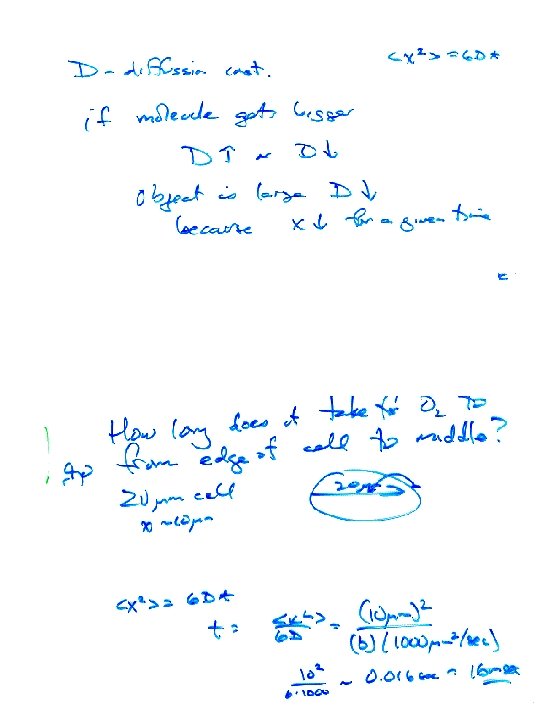 D - diffussion const.
<x²> = 6Dt
if molecule gets bigger
D↑ or D↓
object is large D↓
because x↓ for a given time
How long does it take for O₂ to
from edge of cell to middle?
20μm cell
x ~10μm
20μm
<x²> = 6Dt
t = <x²>/6D = (10μm)²/(6)(1000μm²/sec)
10²/6·1000 ~ 0.016 sec = 16msec